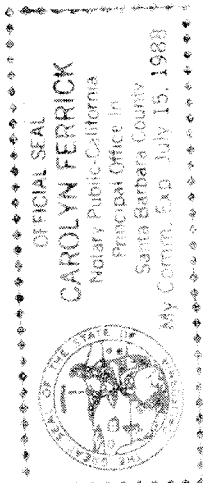 OFFICIAL SEAL
CAROLYN FERRICK
Notary Public-California
Principal Office In
Santa Barbara County
My Comm. Exp. July 15, 1988
SEAL OF THE STATE OF
THE